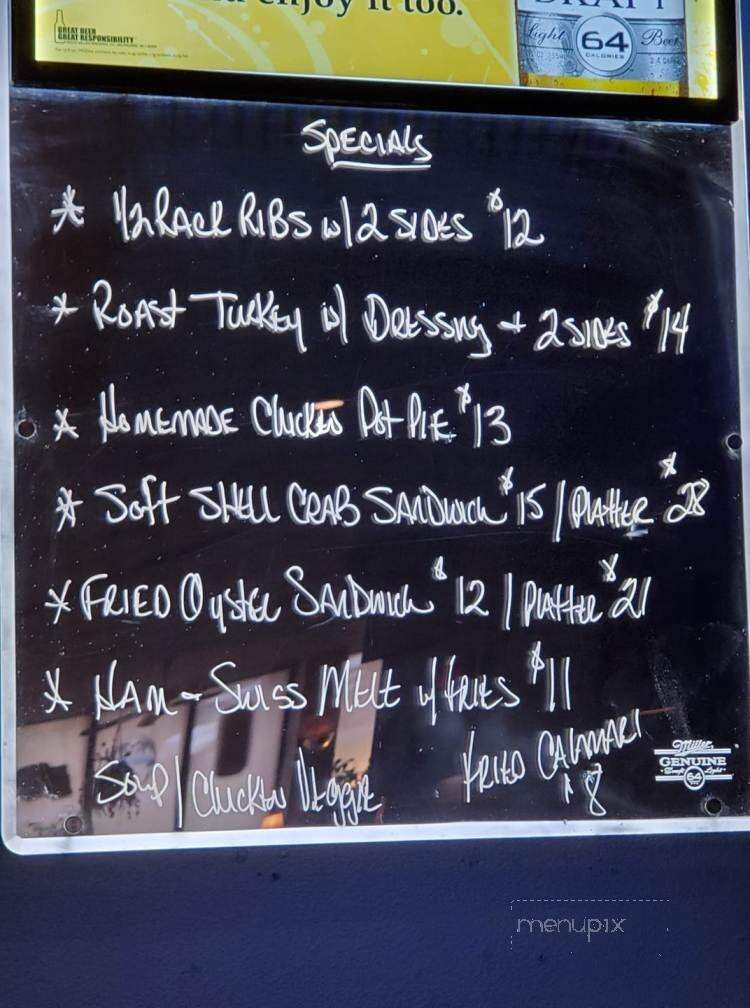 enjoy it too.
GREAT BEER
GREAT RESPONSIBILITY
DRAFT
Light 64 Beer
CALORIES
SPECIALS
* 1/2 RACK RIBS w/ 2 SIDES $12
* ROAST TURKEY w/ DRESSING + 2 SIDES $14
* HOMEMADE CHICKEN POT PIE $13
* SOFT SHELL CRAB SANDWICH $15 / PLATTER $28
* FRIED OYSTER SANDWICH $12 / PLATTER $21
* HAM - SWISS MELT w/ FRIES $11
SOUP / CHICKEN VEGGIE
FRIED CALAMARI
$8
Miller
GENUINE
Draft 64 Light
menupix